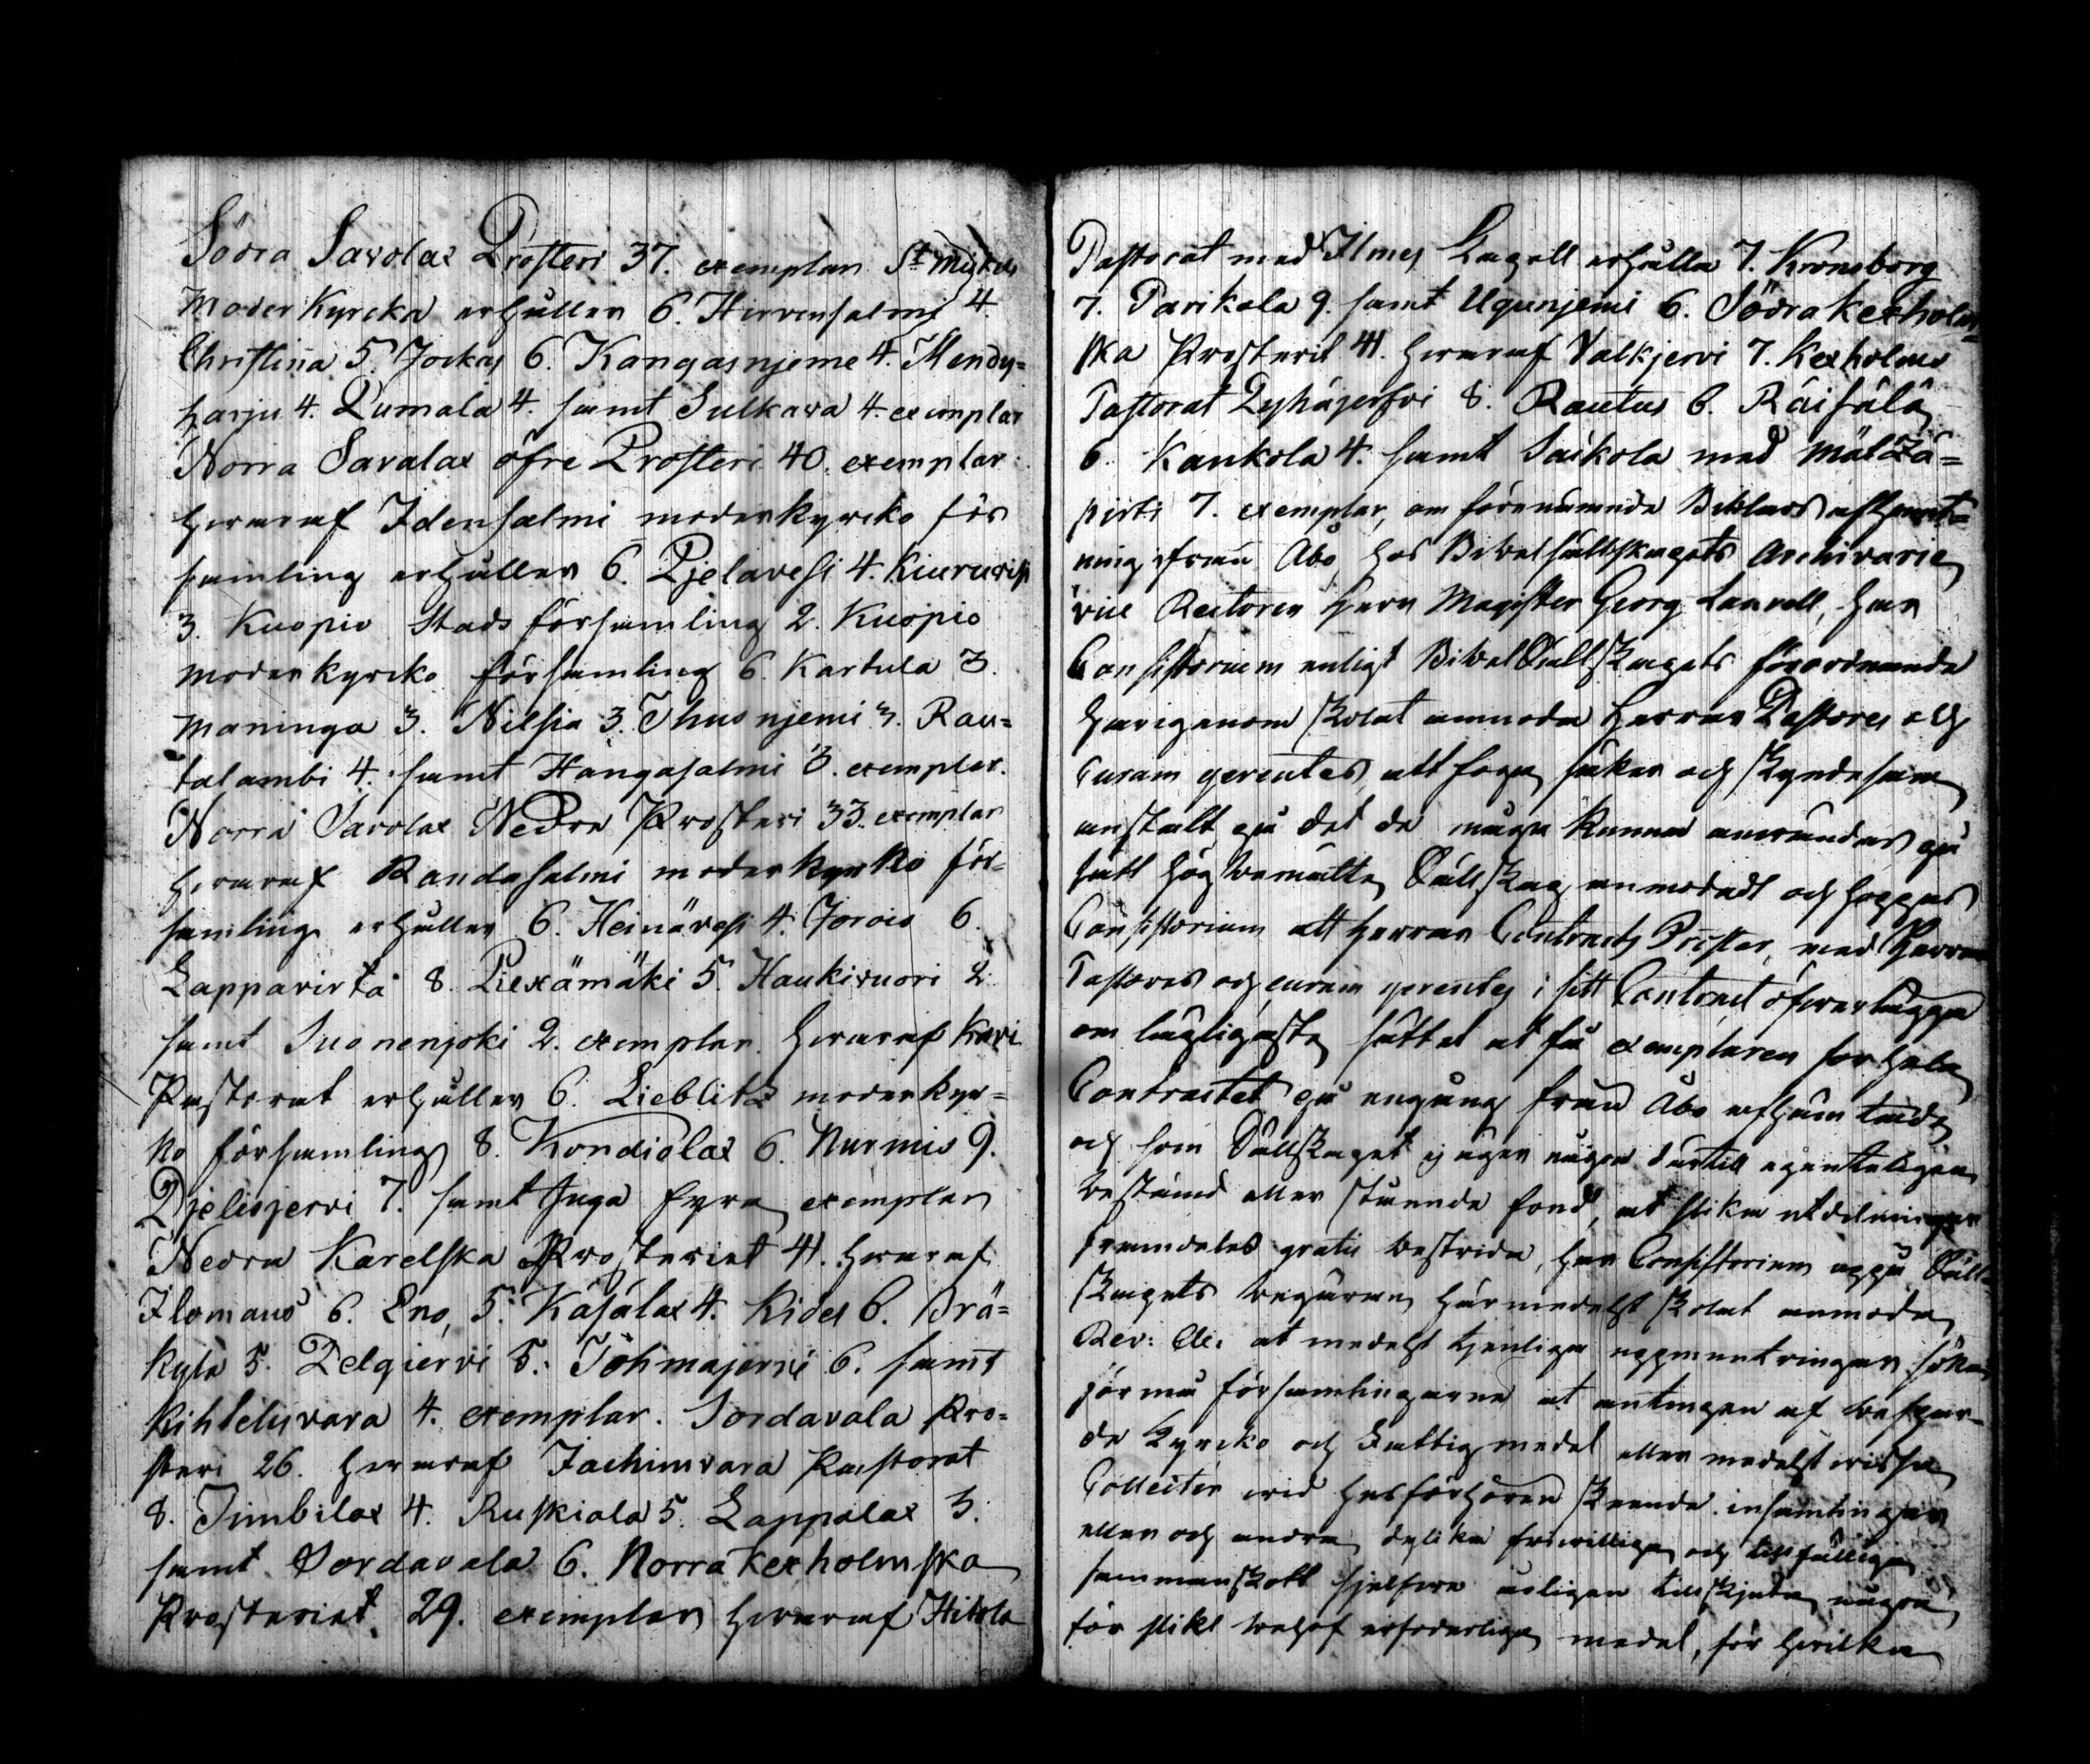 Södra Savolax Prosteri 37. exemplar St Mickels
Moderkyrcka erhåller 6. Hirvensalmi 4.
Christina 5. Jockas 6. Kangasnjeme 4. Mendy=
harju 4. Pumala 4. samt Sulkava 4. exemplar
Norra Savalax öfre Prosteri 40. exemplar
hvaraf Idensalmi moderkyrcko för
samling erhåller 6. Pjelavesi 4. Kiuruvesi
3. Kuopio Stads församling 2. Kuopio
moderkyrcko församling 6. Kartula 3.
Maninga 3. Nilsia 3. Thusnjemi 3. Rau=
talambi 4. samt Hangasalmi 3. exemplar.
Norra Savolax Nedra Prosteri 33. exemplar
hvaraf Randasalmi moderkyrko för=
samling erhåller 6. Heinävesi 4. Jorois 6.
Lappavirta 8. Piexämäki 5. Haukivuori 2.
samt Suonenjoki 2. exemplar. hvaraf Kavi
Pastorat erhåller 6. Lieblitz moderkyr=
ko församling 8. Kondiolax 6. Nurmis 9.
Pjelisjervi 7. samt Juga fyra exemplar
Nedra Karelska Prosteriet 41. hvaraf
Ilomans 6. Eno, 5. Kåsålax 4. Kides 6. Brä=
kylä 5. Pelgjervi 5. Tohmajervi 6. samt
Kihtelysvara 4. exemplar. Sordavala Pro=
steri 26. hvaraf Jachimvara Pastorat
8. Imbilax 4. Ruskiala 5. Lappalax 3.
samt Sordavala 6. Norra Kexholmska
Prosteriet 29. exemplar hvaraf Hitola
Pastorat med Ilmes Capell erhålla 7. Kronoborg
7. Parikala 9. samt Ugunjemi 6. Södra Kexholm=
ska Prosteriet 41. hvaraf Valkjervi 7. Kexholms
Pastorat Pyhäjerfvi 8. Rautus 6. Räisälä
6. Kaukola 4. samt Saikola med Mätzä=
pirti 7. exemplar, om förenämnde Biblars afhemt=
ning ifrån Åbo, hos Bibelsällskapets Archivarie
vice Rectoren Herr Magister Georg har
Consistorium enligt Bibel Sällskapets förordnande
härigenom skolat anmoda Herrar Pastorer och
Curam gerentes, att foga säker och skyndesam
anstalt på det de måga kunna användas på
sätt högbemälte Sällskap anmodadt och hoppas
Consistorium att Herrar Contracts Proster, med Herrar
Pastores och curam gerentes i sitt Contract öfverlägga
om lägligaste sättet at få exemplaren för hela
Contractet på engång från Åbo afhämtade
och som Sällskapet ej äger någon dertill egenteligen
bestämd eller stående fond, at slika utdelningar
framdeles gratis bestrida, har Consistorium uppå Säll=
skapets begäran härmedelst skolat anmoda
Rev: Cle: at medelst tjenliga uppmuntringar söka
förmå församlingarne at antingen af bespar=
de Kyrcko och Fattigmedel eller medelst vissa
Collecter vid husförhören skeende insamlingar
eller och andra dylika friwilliga och tillfälliga
sammanskott sjelfve årligen tillskjuta några
för slikt behof erforderliga medel, för hvilka